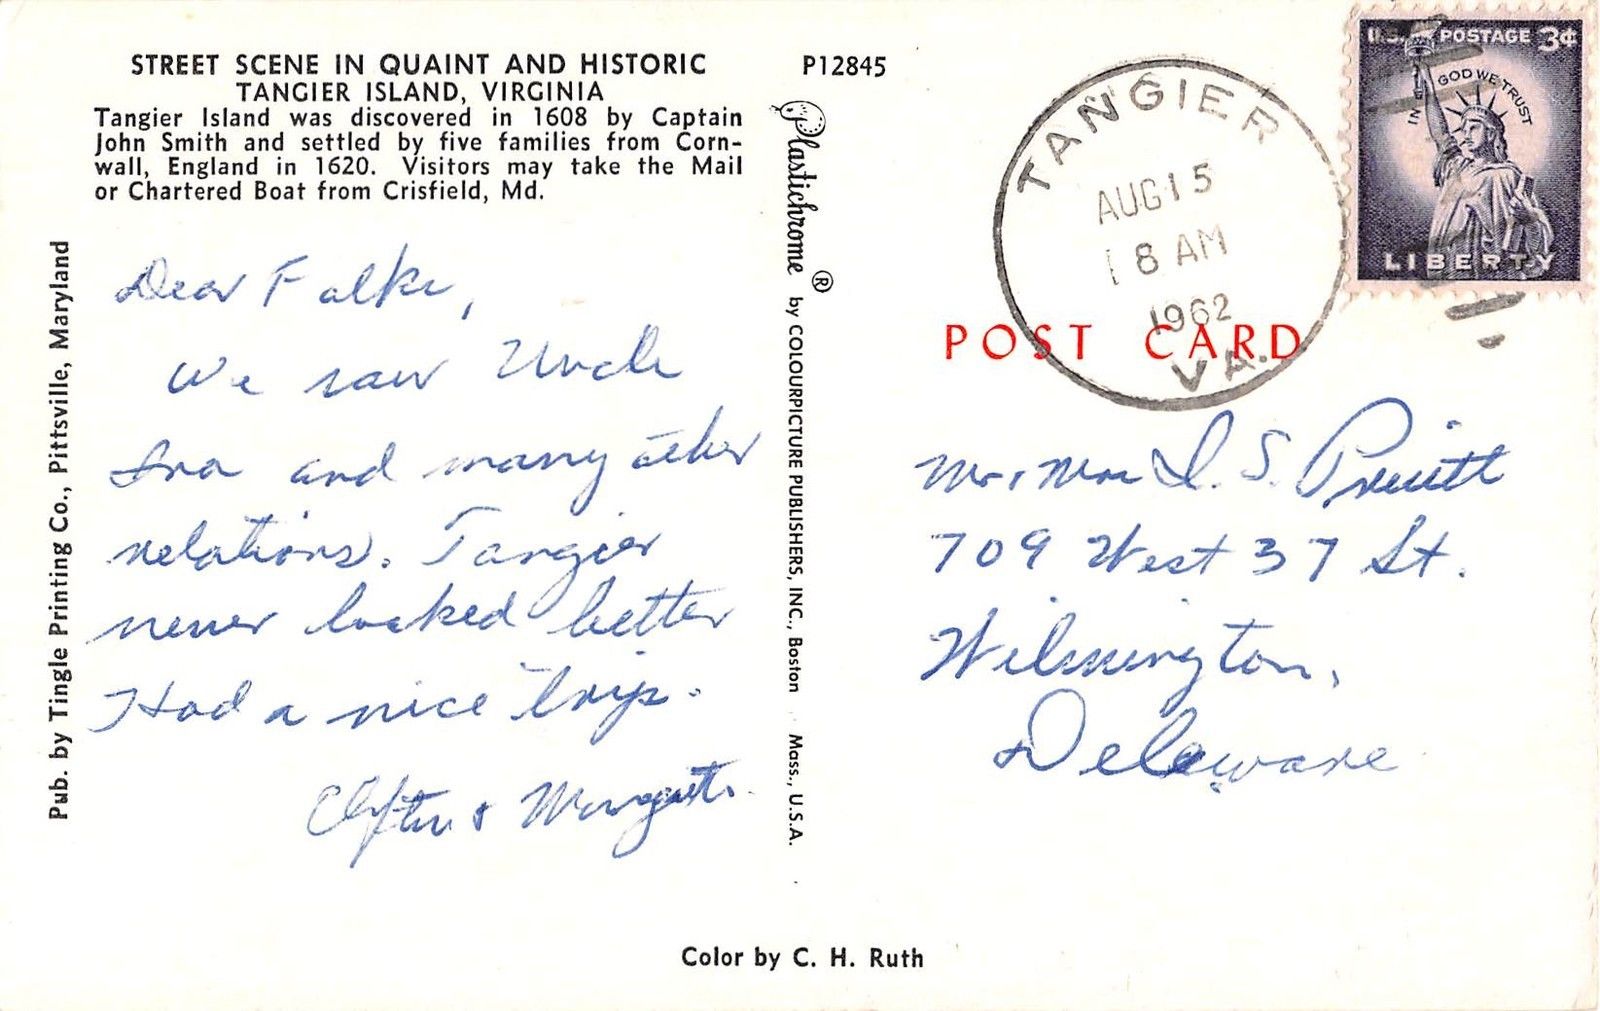 STREET SCENE IN QUAINT AND HISTORIC
TANGIER ISLAND, VIRGINIA
Tangier Island was discovered in 1608 by Captain
John Smith and settled by five families from Corn-
wall, England in 1620. Visitors may take the Mail
or Chartered Boat from Crisfield, Md.
Dear Folks,
We saw Uncle
Ira and many other
relations. Tangier
never looked better
Had a nice trip.
Clifton & Margaret.
Pub. by Tingle Printing Co., Pittsville, Maryland
P12845
Plastichrome ® by COLOURPICTURE PUBLISHERS, INC., Boston Mass., U.S.A.
TANGIER
AUG 15
8 AM
1962
VA.
U.S. POSTAGE 3¢
IN GOD WE TRUST
LIBERTY
POST CARD
Mr. Mrs I. S. Pruitt
709 West 37 St.
Wilmington,
Delaware
Color by C. H. Ruth